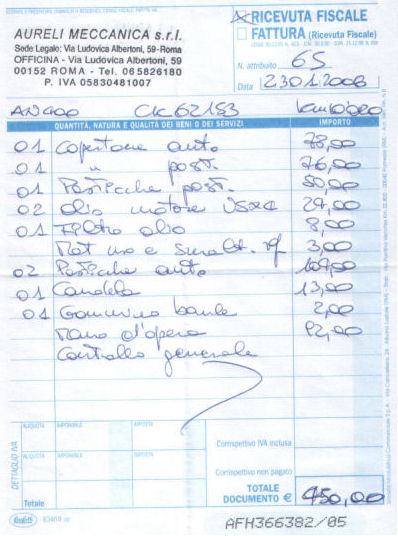 AURELI MECCANICA s.r.l.
Sede Legale: Via Ludovica Albertoni, 59-Roma
OFFICINA - Via Ludovica Albertoni, 59
00152 ROMA - Tel. 065826180
P. IVA 05830481007
RICEVUTA FISCALE
FATTURA (Ricevuta Fiscale)
N. attribuito 65
Data 23.01.2006
CK62153
QUANTITÀ, NATURA E QUALITÀ DEI BENI O DEI SERVIZI IMPORTO
01 Copertone ant. 78,00
01 " post. 76,00
01 Pasticche post. 50,00
02 olio motore 24,00
01 Filtro olio 8,00
3,00
02 Pasticche ant. 104,00
01 Candela 13,00
01 Gommino 2,00
Mano d'opera 92,00
Controllo generale
DETTAGLIO IVA
ALIQUOTA IMPONIBILE IMPOSTA ALIQUOTA IMPONIBILE IMPOSTA
Totale
Corrispettivo IVA inclusa
Corrispettivo non pagato
TOTALE DOCUMENTO € 450,00
AFH366382/05